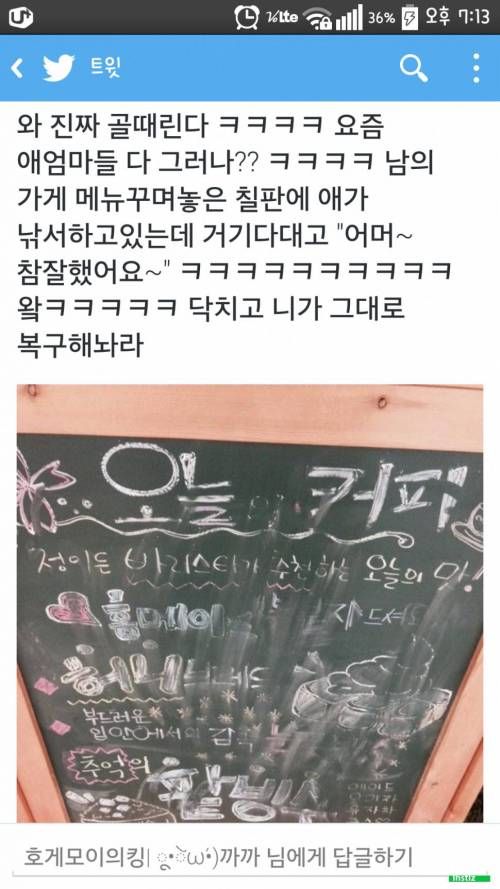 VLTE 36% 오후 7:13
트윗
와 진짜 골때린다 ㅋㅋㅋㅋ 요즘
애엄마들 다 그러나?? ㅋㅋㅋㅋ 남의
가게 메뉴꾸며놓은 칠판에 애가
낚서하고있는데 거기다대고 "어머~
참잘했어요~" ㅋㅋㅋㅋㅋㅋㅋㅋㅋㅋ
왘ㅋㅋㅋㅋㅋ 닥치고 니가 그대로
복구해놔라
오늘의 커피
정이든 바리스타가 추천하는 오늘의 맛!
홈메이
허니브레드
부드러운
추억의
팥빙수
에이드
유자차
호게모이의킹| ू•ੋω•́)까까 님에게 답글하기
instiz